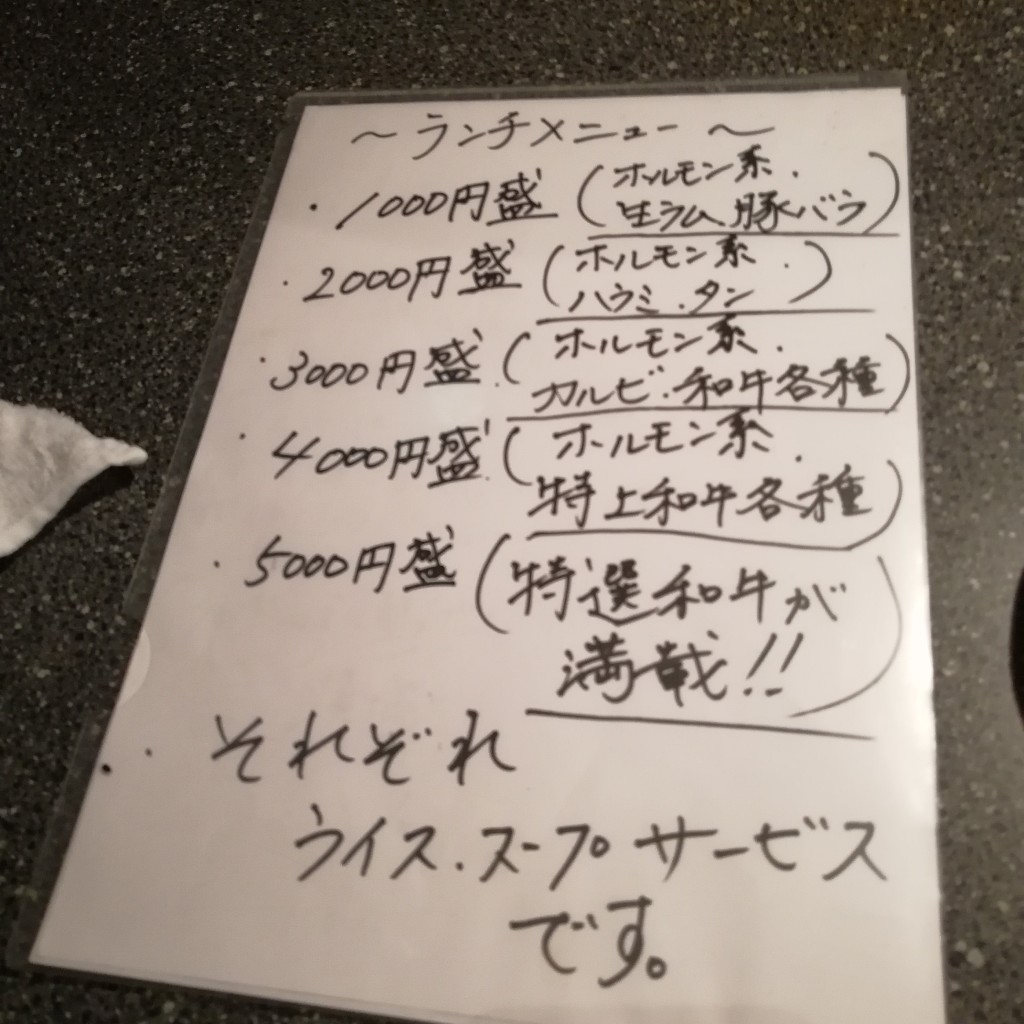 ～ランチメニュー～
・1000円盛(ホルモン系.
生ラム、豚バラ)
・2000円盛(ホルモン系.
ハラミ.タン)
・3000円盛.(ホルモン系.
カルビ.和牛各種)
・4000円盛.(ホルモン系.
特上和牛各種)
・5000円盛(特選和牛が
満載!!)
・それぞれ
ライス.スープサービス
です。